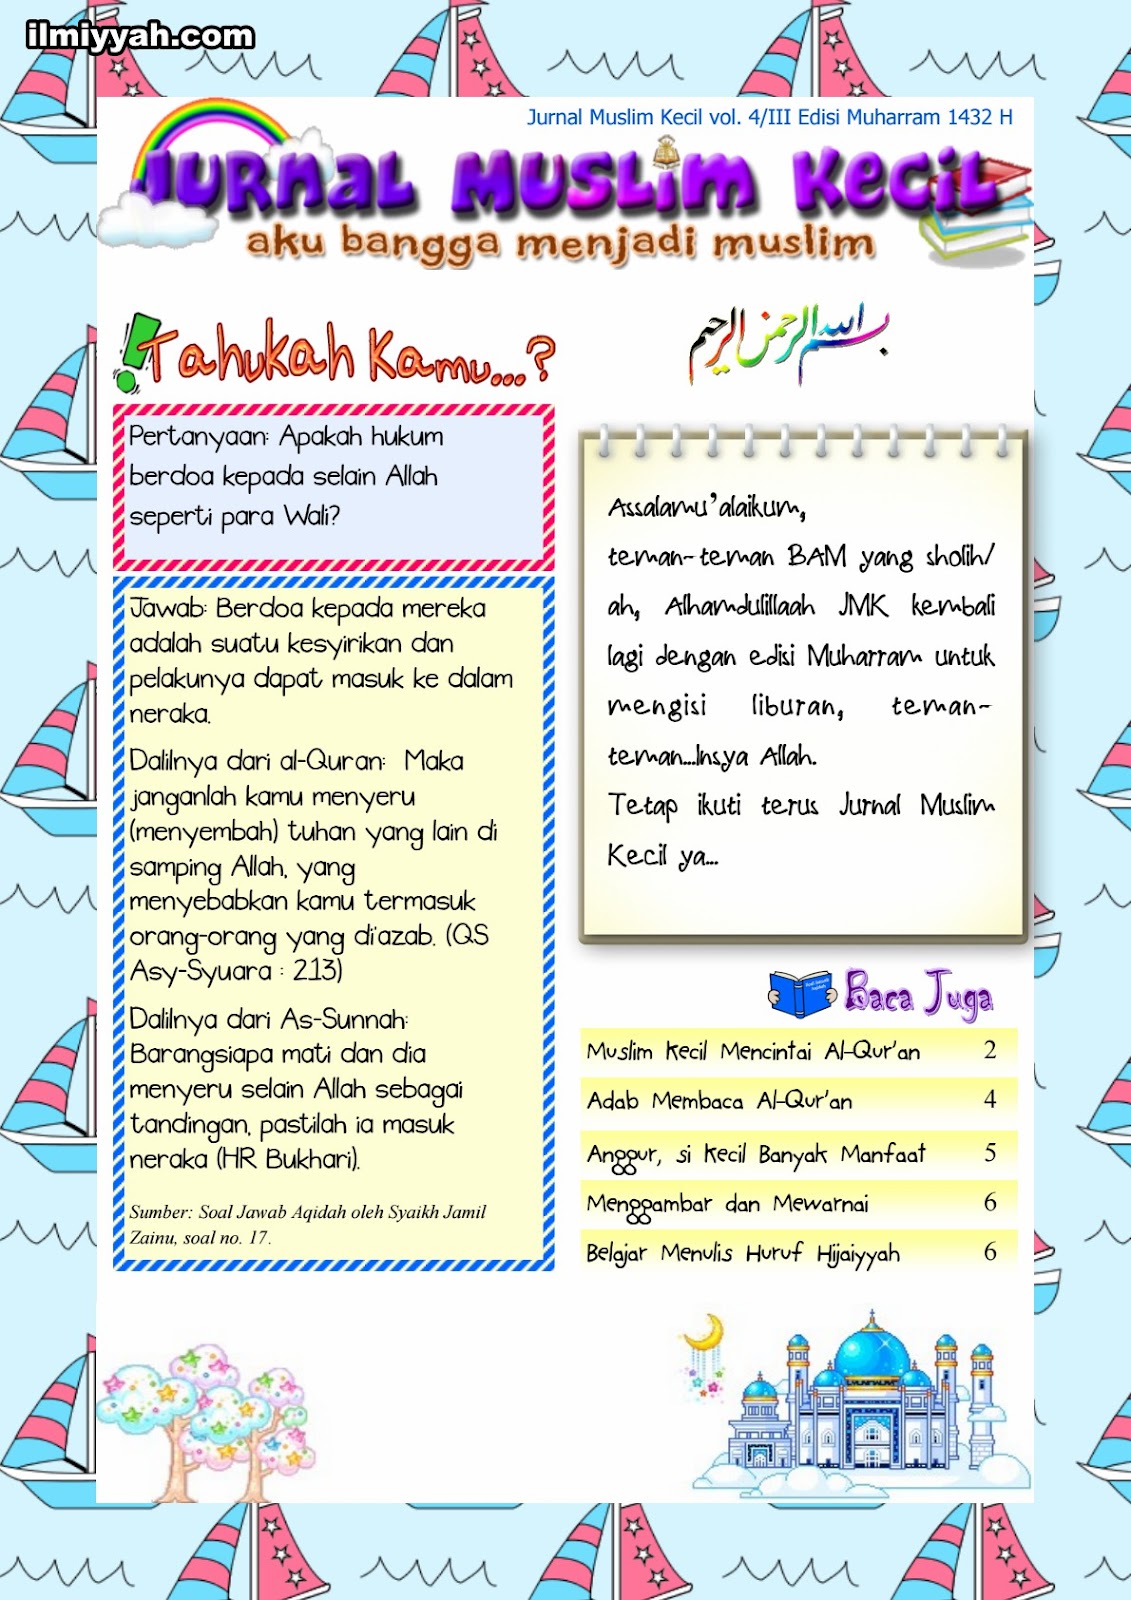 ilmiyyah.com
Jurnal Muslim Kecil vol. 4/III Edisi Muharram 1432 H
JURNAL MUSLIM KECIL
aku bangga menjadi muslim
Tahukah Kamu...?
Pertanyaan: Apakah hukum
berdoa kepada selain Allah
seperti para Wali?
Jawab: Berdoa kepada mereka
adalah suatu kesyirikan dan
pelakunya dapat masuk ke dalam
neraka.
Dalilnya dari al-Quran: Maka
janganlah kamu menyeru
(menyembah) tuhan yang lain di
samping Allah, yang
menyebabkan kamu termasuk
orang-orang yang di'azab. (QS
Asy-Syuara : 213)
Dalilnya dari As-Sunnah:
Barangsiapa mati dan dia
menyeru selain Allah sebagai
tandingan, pastilah ia masuk
neraka (HR Bukhari).
Sumber: Soal Jawab Aqidah oleh Syaikh Jamil
Zainu, soal no. 17.
بسم الله الرحمن الرحيم
Assalamu'alaikum,
teman-teman BAM yang sholih/
ah, Alhamdulillaah JMK kembali
lagi dengan edisi Muharram untuk
mengisi liburan, teman-
teman...Insya Allah.
Tetap ikuti terus Jurnal Muslim
Kecil ya...
Baca Juga
Muslim Kecil Mencintai Al-Qur'an 2
Adab Membaca Al-Qur'an 4
Anggur, si Kecil Banyak Manfaat 5
Menggambar dan Mewarnai 6
Belajar Menulis Huruf Hijaiyyah 6